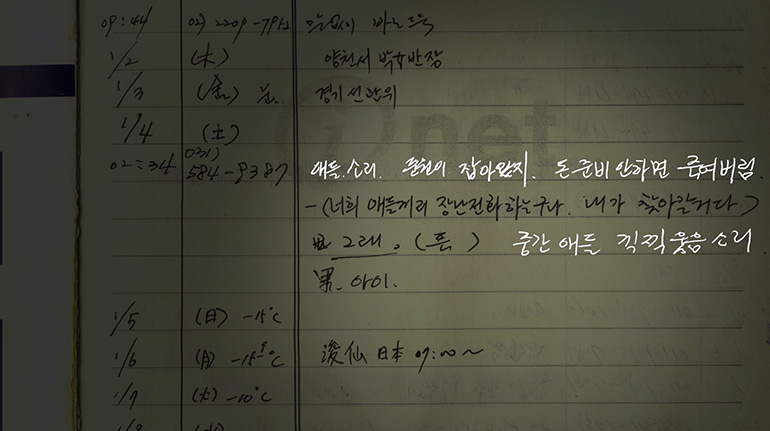 09:44 02) 2209-7912 말없이 바로 뚝
1/2 (木) 양천서 박 반장
1/3 (金) 눈. 경기 선관위
1/4 (土)
02:34 031) 584-8387 애들 소리. 잡아왔지. 돈준비 안하면 죽여버림.
-(너희 애들끼리 장난전화하는구나. 내가 찾아갈거다)
그래. (흔) 중간 애들 끽찍 웃음소리
男. 아이.
1/5 (日) -15℃
1/6 (月) -15℃ 浚仙 日本 09:00~
1/7 (火) -10℃
1/8
net